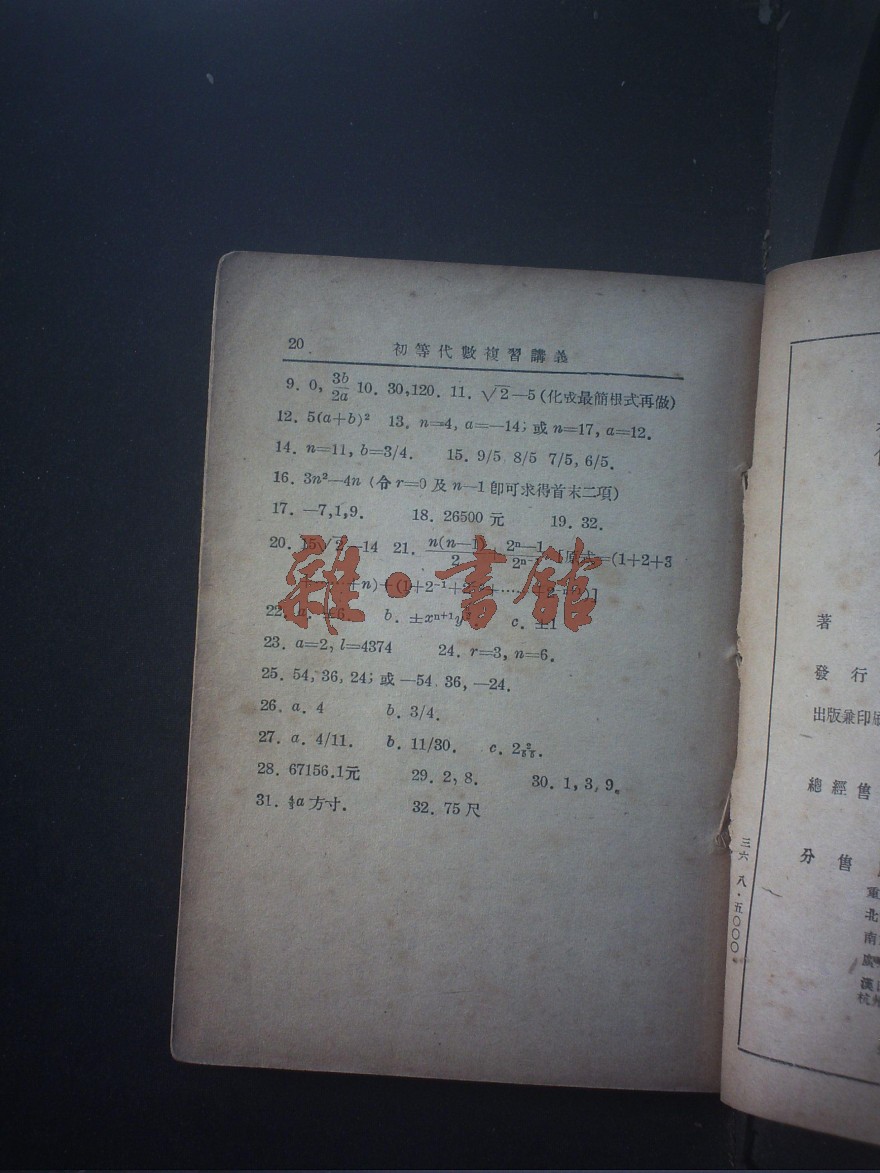 20 初等代數複習講義
9. 0, 3b/2a 10. 30,120. 11. √2—5 (化成最簡根式再做)
12. 5(a+b)² 13. n=4, a=—14; 或 n=17, a=12.
14. n=11, b=3/4. 15. 9/5 8/5 7/5, 6/5.
16. 3n²—4n (令 r=0 及 n—1 卽可求得首末二項)
17. —7,1,9. 18. 26500 元 19. 32.
20. 15√2—14 21. n(n—1)/2 2ⁿ—1 原式=(1+2+3
+n)+(1+2⁻¹+
22. b. ±xⁿ⁺¹y c. ±1
23. a=2, l=4374 24. r=3, n=6.
25. 54, 36, 24; 或 —54 36, —24.
26. a. 4 b. 3/4.
27. a. 4/11. b. 11/30. c.
28. 67156.1元 29. 2, 8. 30. 1, 3, 9.
31. a 方寸. 32. 75 尺
雜·書館
著
發行
出版兼印
總經售
分售
北
南
三六 八·五〇〇〇